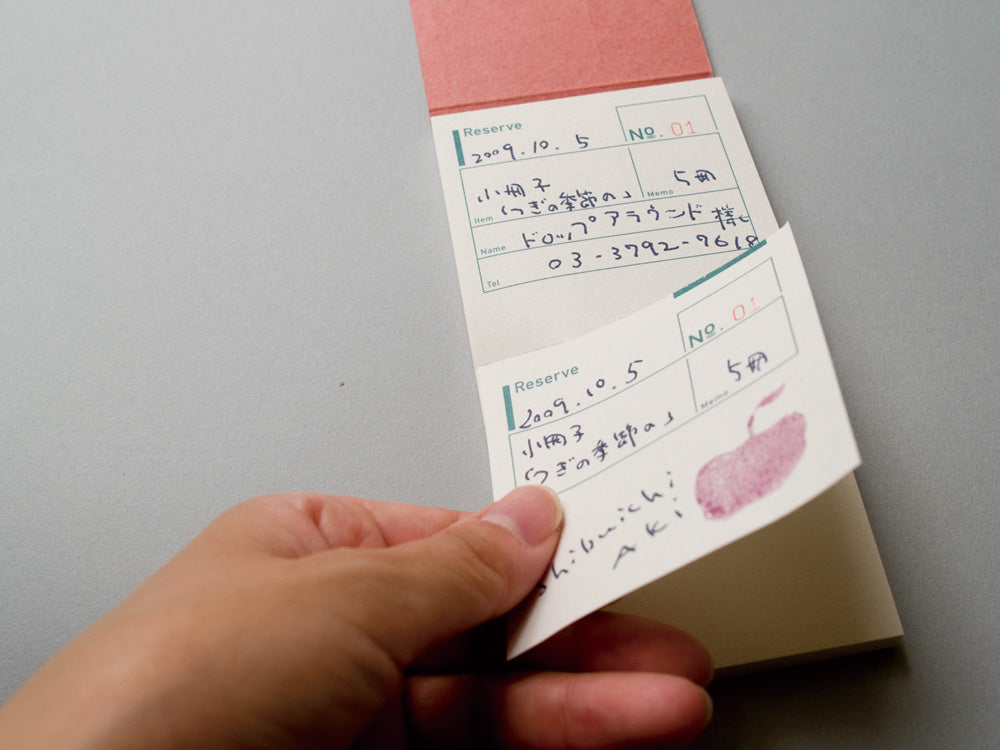 Reserve
No. 01
2009.10.5
小冊子
「つぎの季節の」
Item
Memo
5冊
Name
ドロップアラウンド 様
Tel
03-3792-7618
Reserve
No. 01
2009.10.5
小冊子
「つぎの季節の」
Memo
5冊
aki